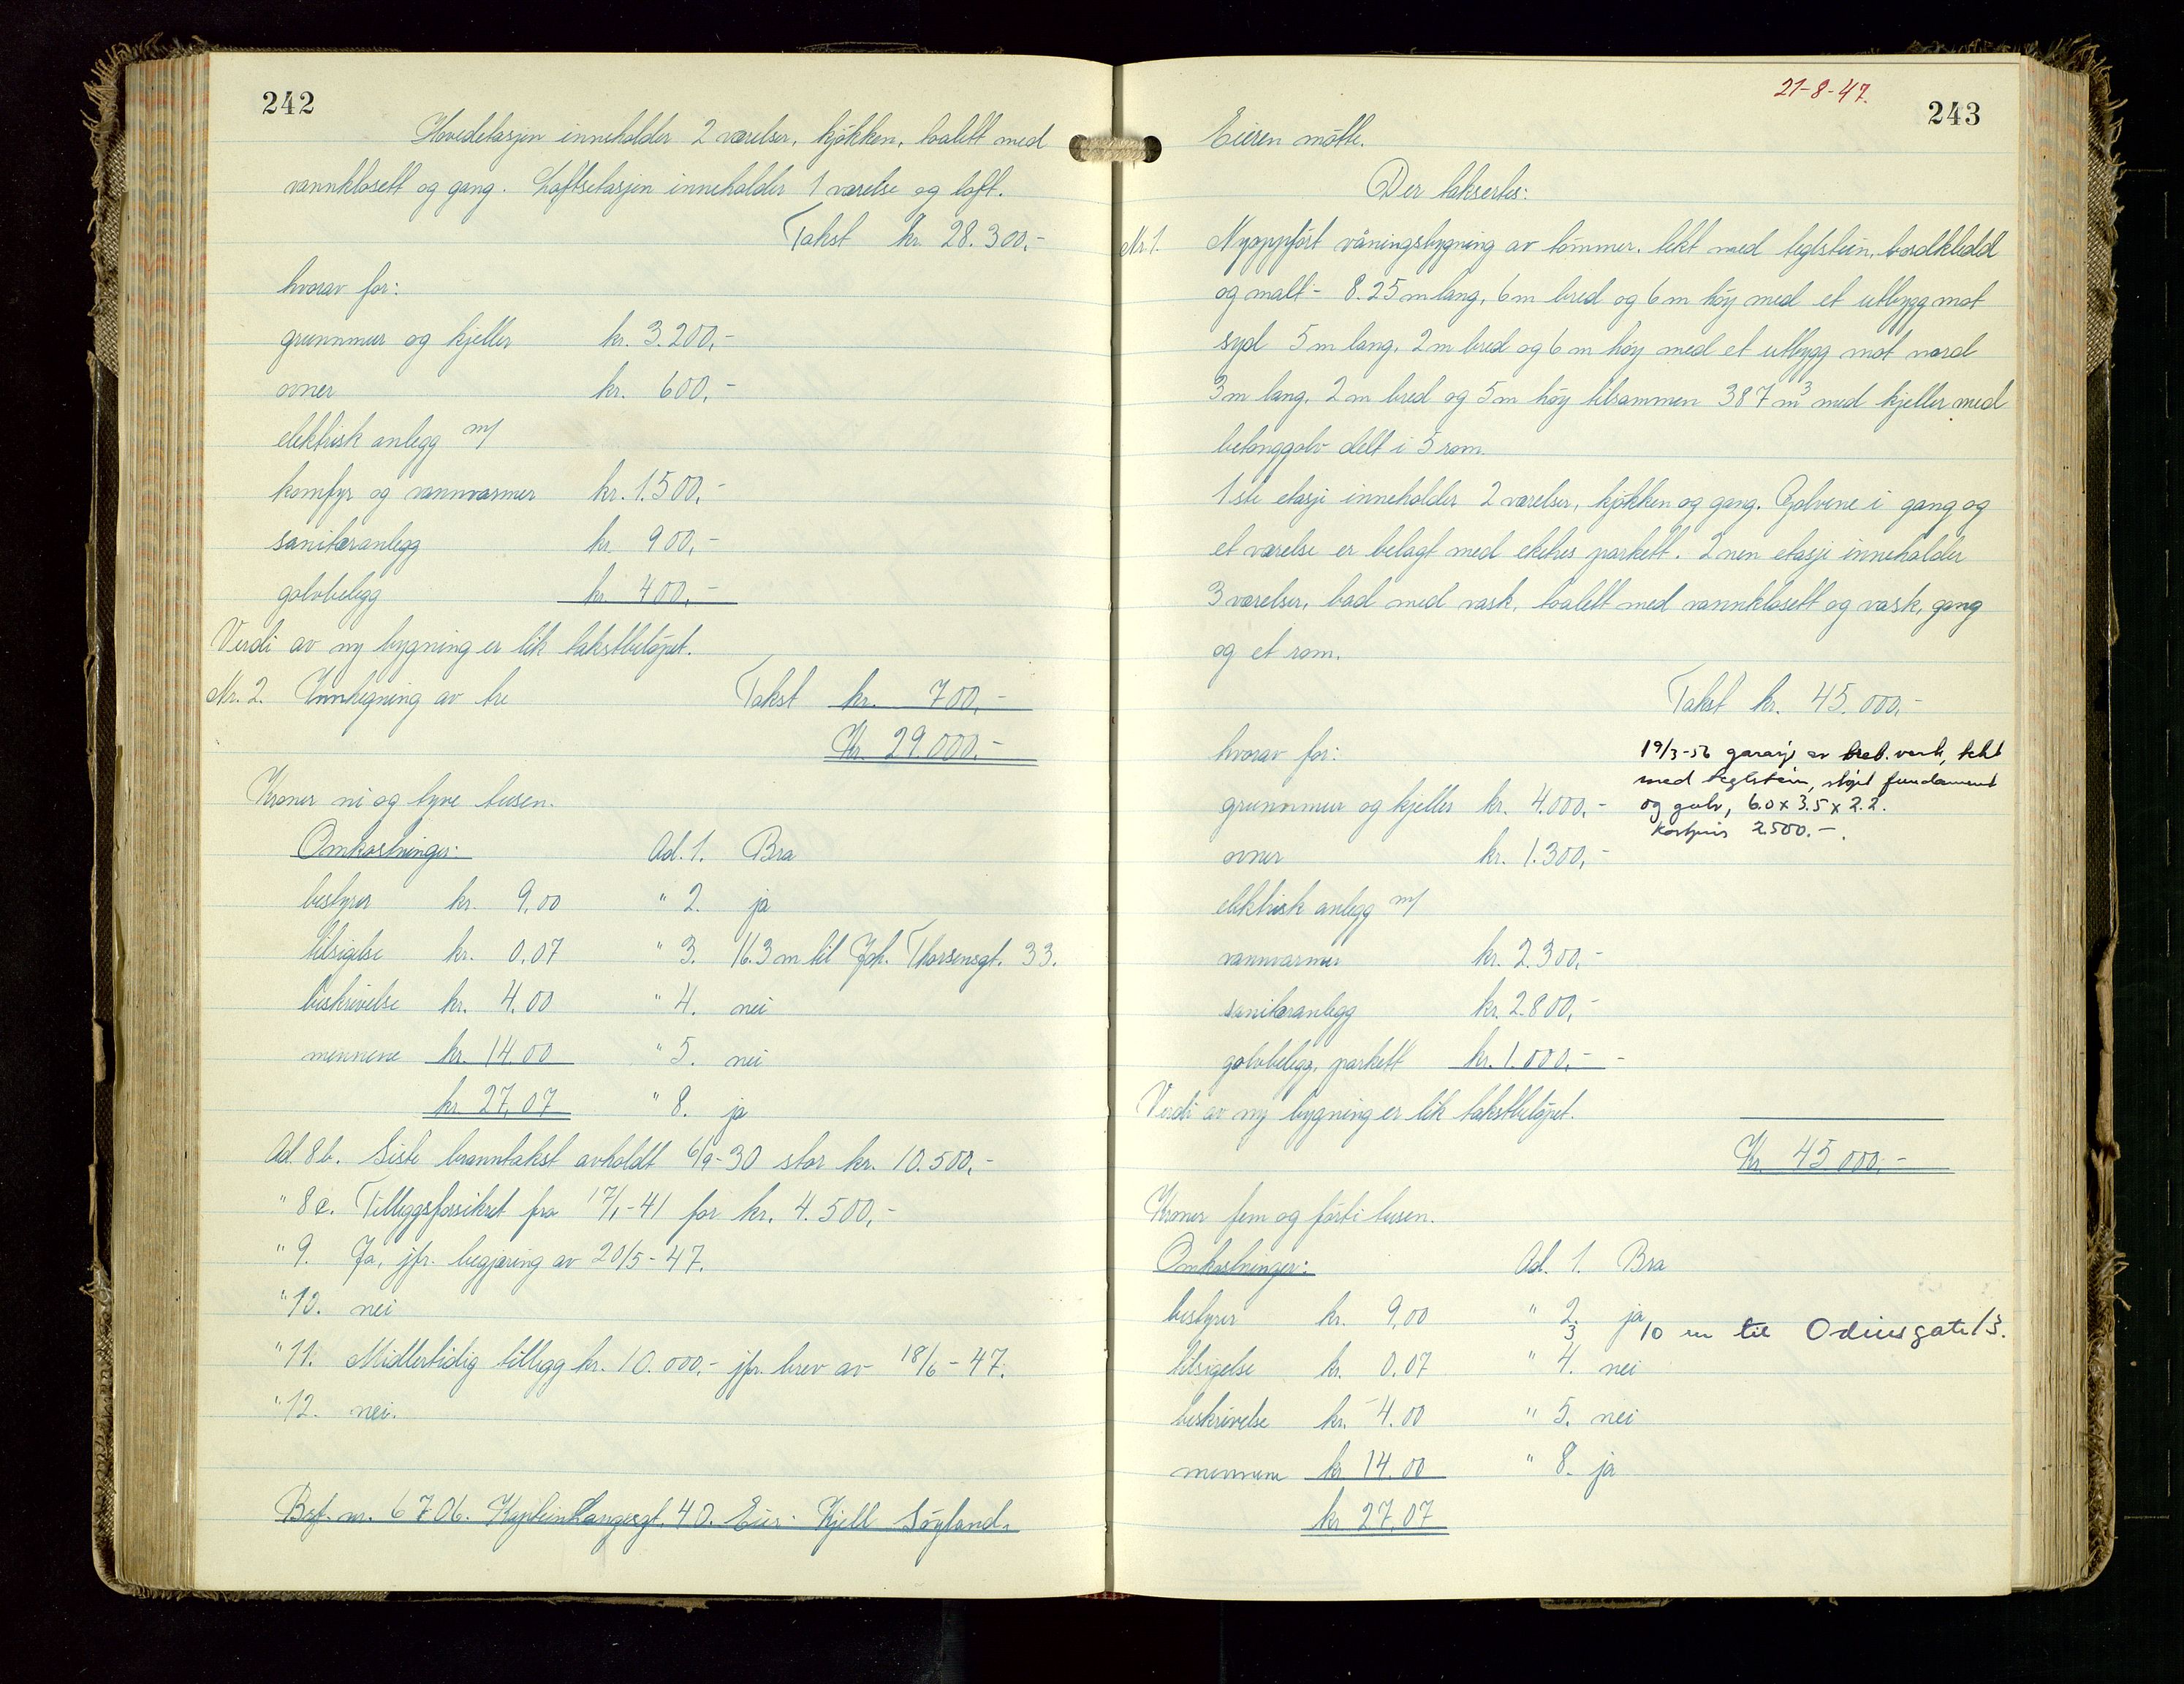 242
Hovedetasjen inneholder 2 værelser, kjøkken, toalett med
vannklosett og gang. Loftsetasjen inneholder 1 værelse og loft.
Takst kr. 28.300,-
hvorav for:
grunnmur og kjeller kr. 3.200,-
ovner kr. 600,-
elektrisk anlegg m/
komfyr og vannvarmer kr. 1.500,-
sanitæranlegg kr. 900,-
golvbelegg kr. 400,-
Verdi av ny bygning er lik takstbeløpet.
Nr. 2. Innhegning av tre Takst kr. 700,-
Kr. 29.000,-
Kroner ni og tyve tusen.
Omkostninger: Ad. 1. Bra
bestyrer kr. 9,00 " 2. ja
tilsigelse kr. 0,07 " 3. 16.3 m til Joh. Thorsensgt. 33.
beskrivelse kr. 4.00 " 4. nei
mennene kr. 14.00 " 5. nei
kr 27,07 " 8. ja
Ad. 8b. Siste branntakst avholdt 6/9-30 stor kr. 10.500,-
" 8c. Tilleggsforsikret fra 17/1-41 for kr. 4.500,-
" 9. Ja, jfr. begjæring av 20/5-47.
" 10. nei
" 11. Midlertidig tillegg kr. 10.000,- jfr. brev av 18/6-47.
" 12. nei.
Brf. nr. 6706. Kaptein Langesgt. 40. Eier: Kjell Søyland.
21-8-47.
243
Eieren møtte.
Der takseres:
Nr. 1. Nyoppført våningsbygning av tømmer, tekt med teglstein, bordkledd
og malt - 8.25 m lang, 6 m bred og 6 m høy med et utbygg mot
syd 5 m lang, 2 m bred og 6 m høy med et utbygg mot nord
3 m lang, 2 m bred og 5 m høy tilsammen 387 m³ med kjeller med
betonggolv delt i 5 rom.
1ste etasje inneholder 2 værelser, kjøkken og gang. Golvene i gang og
et værelse er belagt med eketres parkett. 2nen etasje inneholder
3 værelser, bad med vask, toalett med vannklosett og vask, gang
og et rom.
Takst kr. 45.000,-
hvorav for:
19/3-56 garasje av bind. verk, tekt
med teglstein, støpt fundament
og golv, 6.0 x 3.5 x 2.2.
Kostpris 2500.-.
grunnmur og kjeller kr. 4.000,-
ovner kr. 1.300,-
elektrisk anlegg m/
vannvarmer kr. 2.300,-
sanitæranlegg kr. 2.800,-
golvbelegg, parkett kr. 1.000,-
Verdi av ny bygning er lik takstbeløpet.
Kr. 45.000,-
Kroner fem og førti tusen.
Omkostninger: Ad. 1. Bra
bestyrer kr. 9,00 " 2. ja
3 10 m til Odinsgate 13.
tilsigelse kr. 0.07 " 4. nei
beskrivelse kr. 4.00 " 5. nei
mennene kr 14.00 " 8. ja
kr 27,07